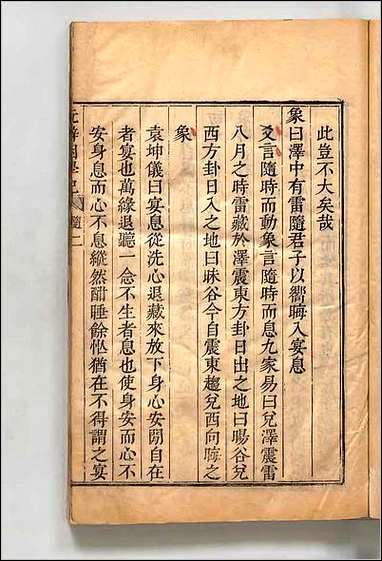 此豈不大矣哉
象曰澤中有雷隨君子以嚮晦入宴息
爻言隨時而動象言隨時而息九家易曰兌澤震雷
八月之時雷藏於澤震東方卦日出之地曰暘谷兌
西方卦日入之地曰昧谷今自震東趨兌西向晦之
象
袁坤儀曰宴息從洗心退藏來放下身心安閒自在
者宴也萬緣退聽一念不生者息也使身安而心不
安身息而心不息縱然酣睡餘㤀猶在不得謂之宴
隨二